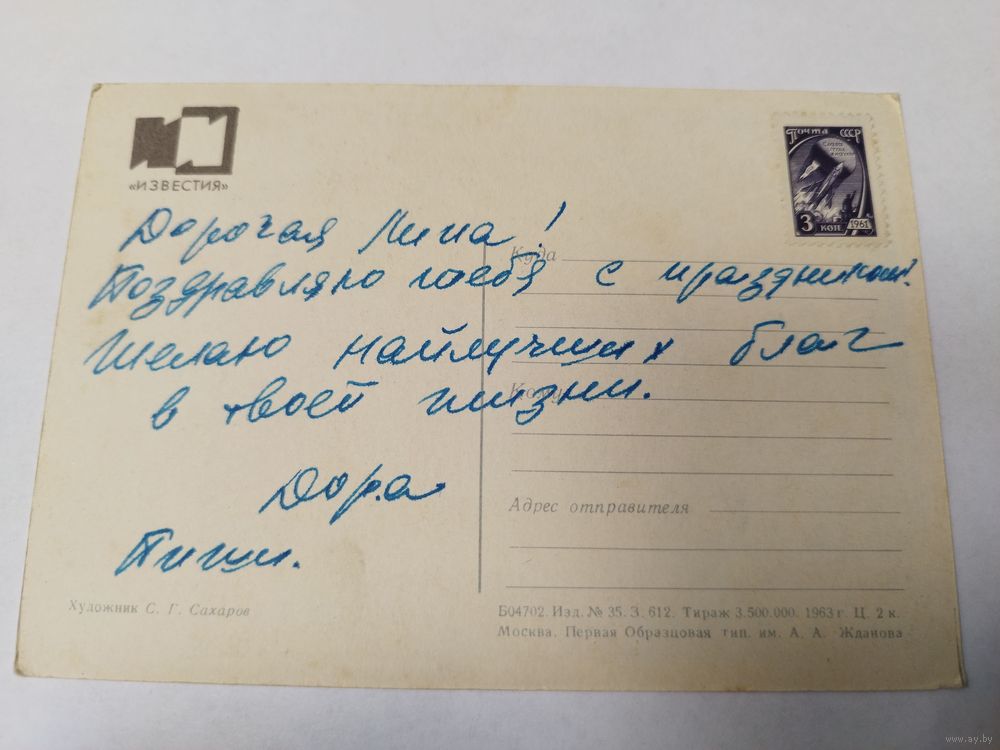 «ИЗВЕСТИЯ»
Почта СССР
3 коп 1961
Дорогая Нина!
Куда
Поздравляю тебя с праздником!
Желаю наилучших благ
Кому
в твоей жизни.
Дора
Адрес отправителя
Пиши.
Художник С. Г. Сахаров
Б04702. Изд. № 35. З. 612. Тираж 3.500.000. 1963 г. Ц. 2 к.
Москва. Первая Образцовая тип. им. А. А. Жданова
www.ay.by